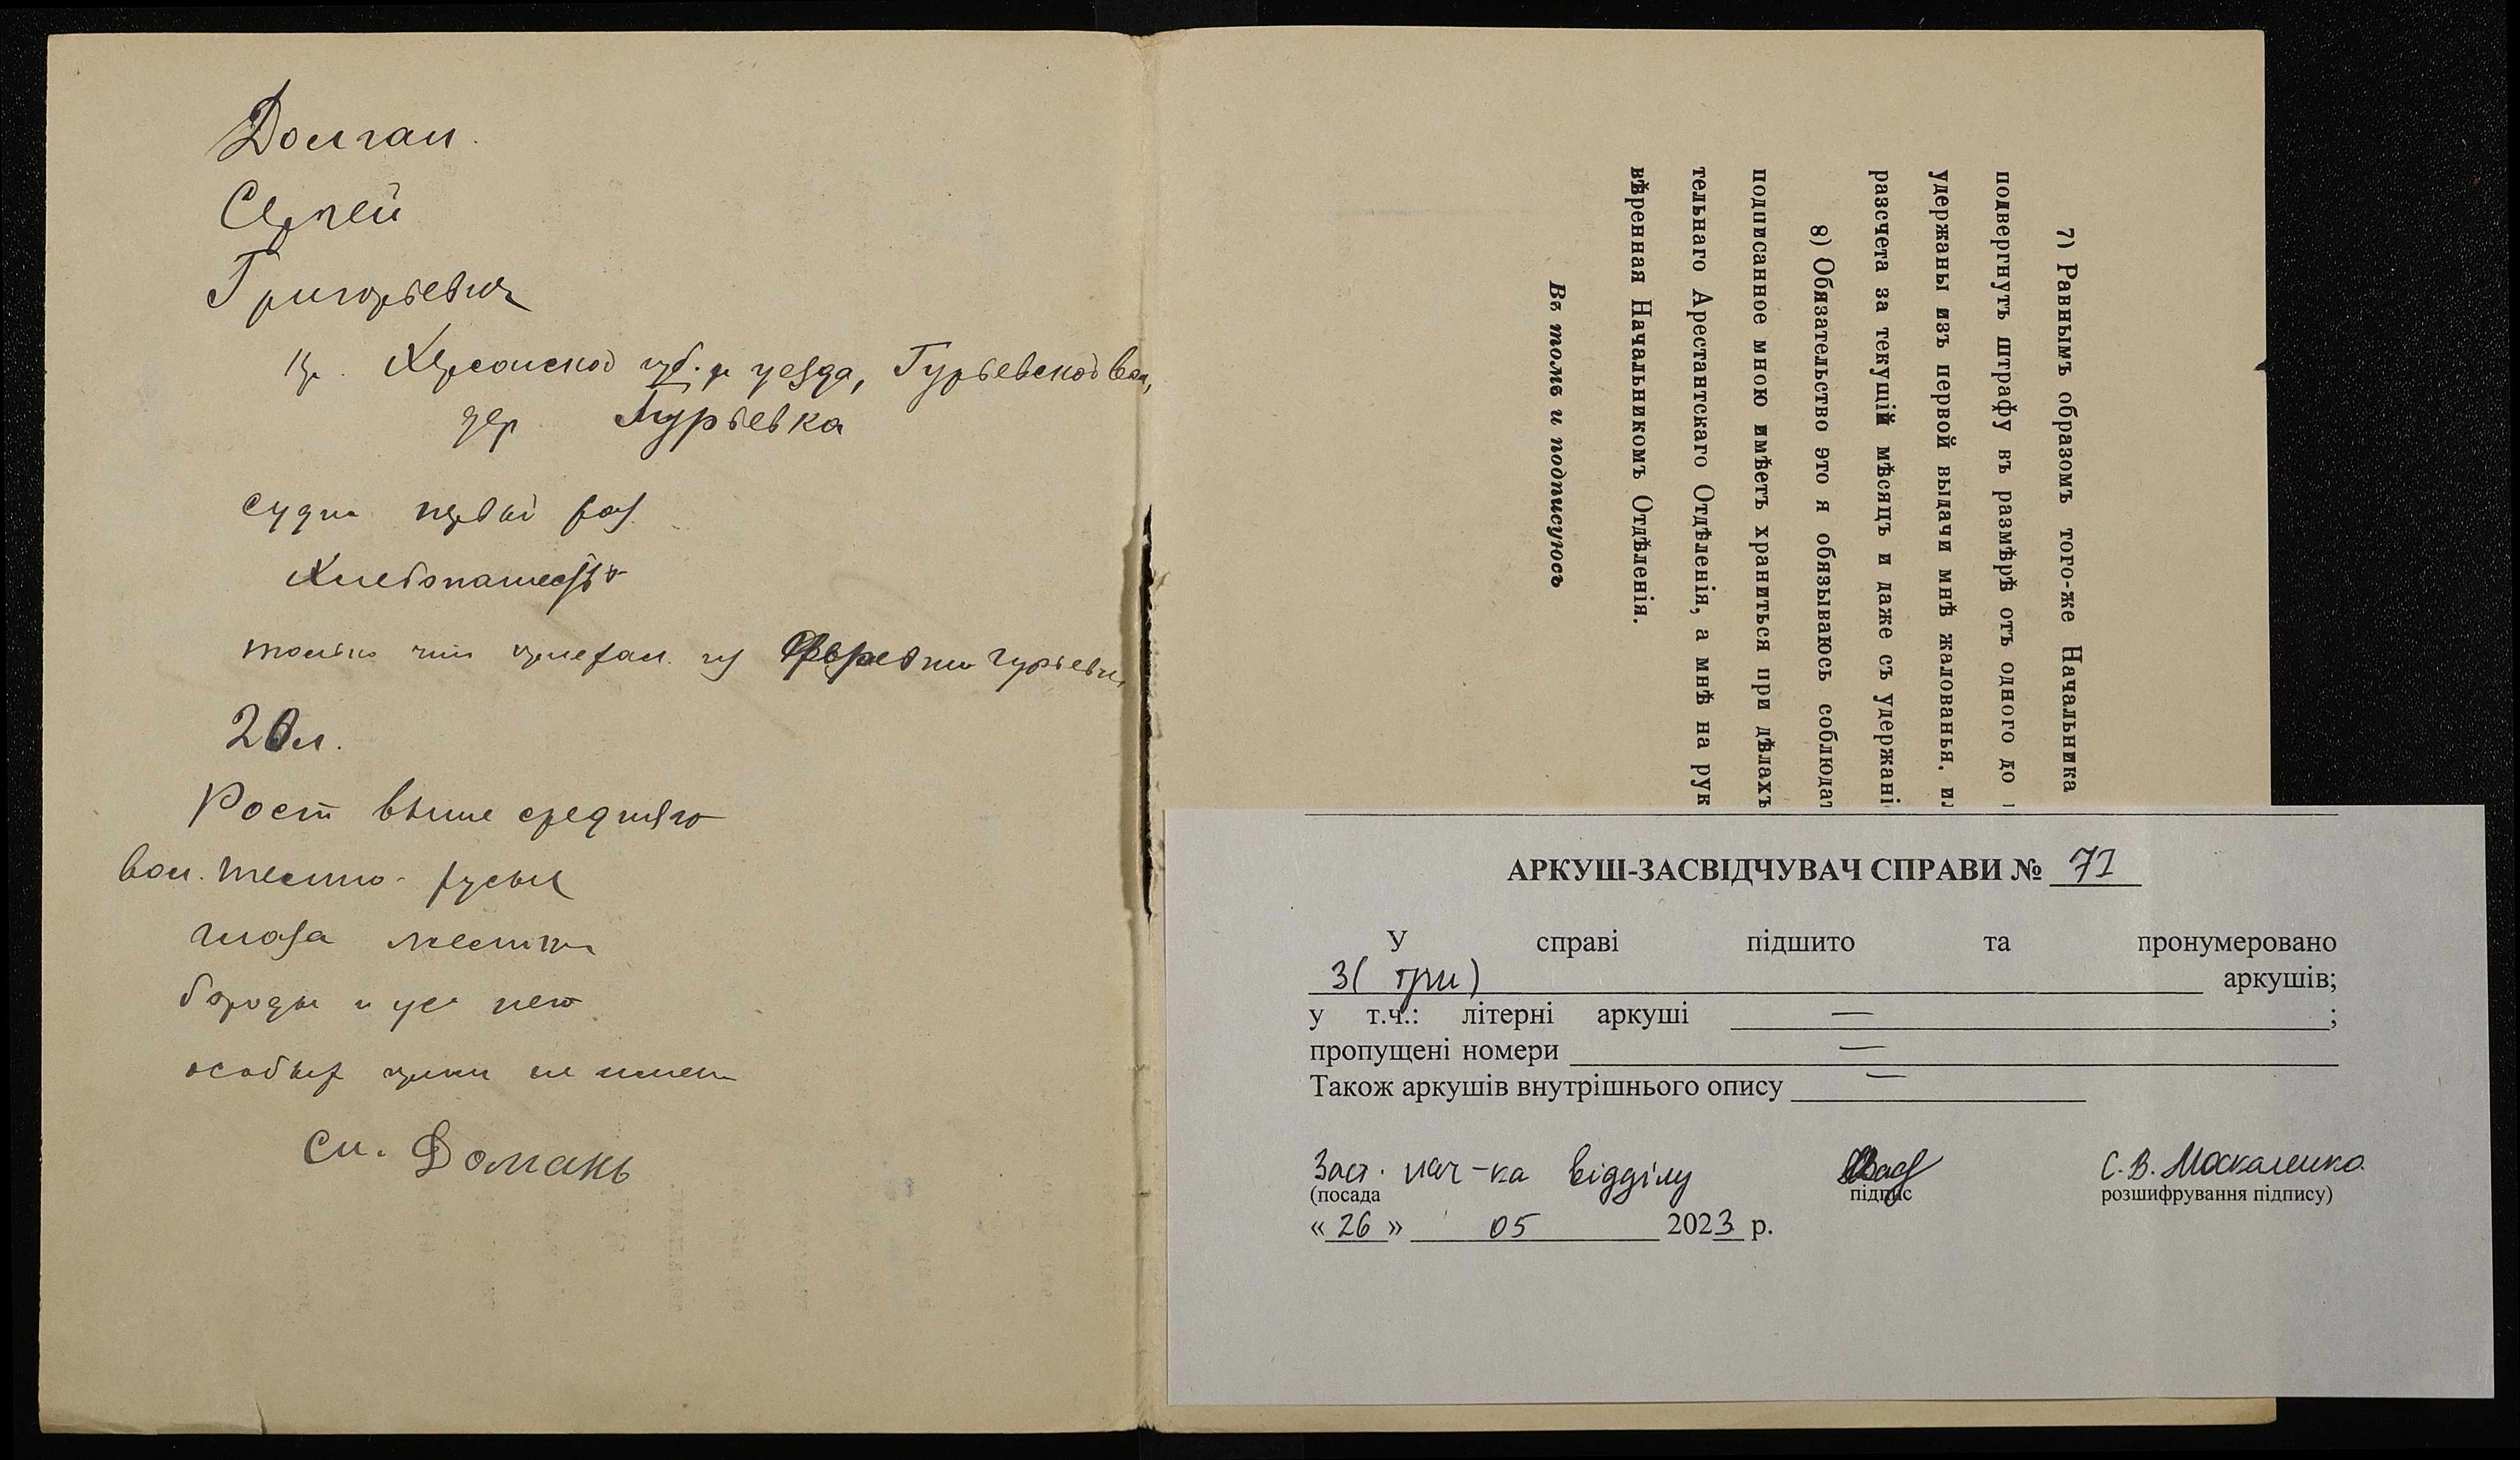 Долган.
Сергей
Григорьевич
кр. Херсонской губ. и уезда, Гурьевской вол,
дер Гурьевка
судим первый раз.
Хлебопашество
только что из деревни гурьевки
20л.
Рост выше среднего
вол. темно-русые
глаза
бороды и ус нет
особых не имеет
См. Домань
7) Равнымъ образомъ того-же Начальника
подвергнутъ штрафу въ размѣрѣ отъ одного до
удержаны изъ первой выдачи мнѣ жалованья,
разсчета за текущій мѣсяцъ и даже съ удержані
8) Обязательство это я обязываюсь соблюдат
подписанное мною имѣетъ храниться при дѣлахъ
тельнаго Арестантскаго Отдѣленія, а мнѣ на рук
вѣренная Начальникомъ Отдѣленія.
Въ томъ и подписуюсь
АРКУШ-ЗАСВІДЧУВАЧ СПРАВИ № 71
У справі підшито та пронумеровано
3( три) аркушів;
у т.ч.: літерні аркуші — ;
пропущені номери —
Також аркушів внутрішнього опису —
Заст. нач-ка відділу С.В. Москаленко
(посада підпис розшифрування підпису)
« 26 » 05 2023 р.